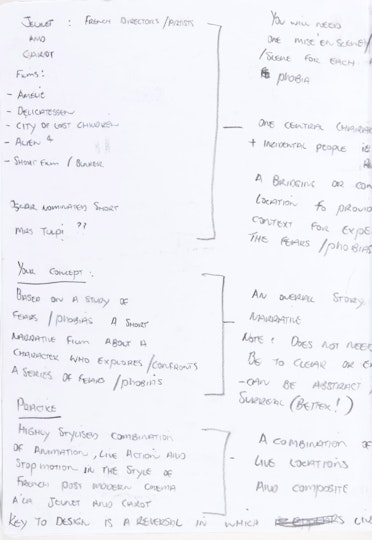 JEUNET : FRENCH DIRECTORS/ARTISTS
AND
CAROT
FILMS:
- AMELIE
- DELICATESSEN
- CITY OF LOST CHILDREN
- ALIEN 4
- SHORT FILM / BUNKER
OSCAR NOMINATED SHORT
MRS TULPI ??
YOUR CONCEPT:
BASED ON A STUDY OF
FEARS/PHOBIAS A SHORT
NARRATIVE FILM ABOUT A
CHARACTER WHO EXPLORES/CONFRONTS
A SERIES OF FEARS/PHOBIAS
PRACTICE
HIGHLY STYLISED COMBINATION
OF ANIMATION, LIVE ACTION AND
STOP MOTION IN THE STYLE OF
FRENCH POST MODERN CINEMA
A'LA JEUNET AND CAROT
KEY TO DESIGN IS A REVERSAL IN WHICH APPEARS LIVE
YOU WILL NEED
ONE MISE EN SCENE/
/SCENE FOR EACH
PHOBIA
ONE CENTRAL CHARAC
+ INCIDENTAL PEOPLE
A BRIDGING OR COM
LOCATION TO PROVID
CONTEXT FOR EXPE
THE FEARS/PHOBIAS
AN OVERALL STORY
NARRATIVE
NOTE! DOES NOT NEE
BE TO CLEAR OR E
- CAN BE ABSTRACT
SURREAL (BETTER!)
A COMBINATION OF
LIVE LOCATIONS
AND COMPOSITE